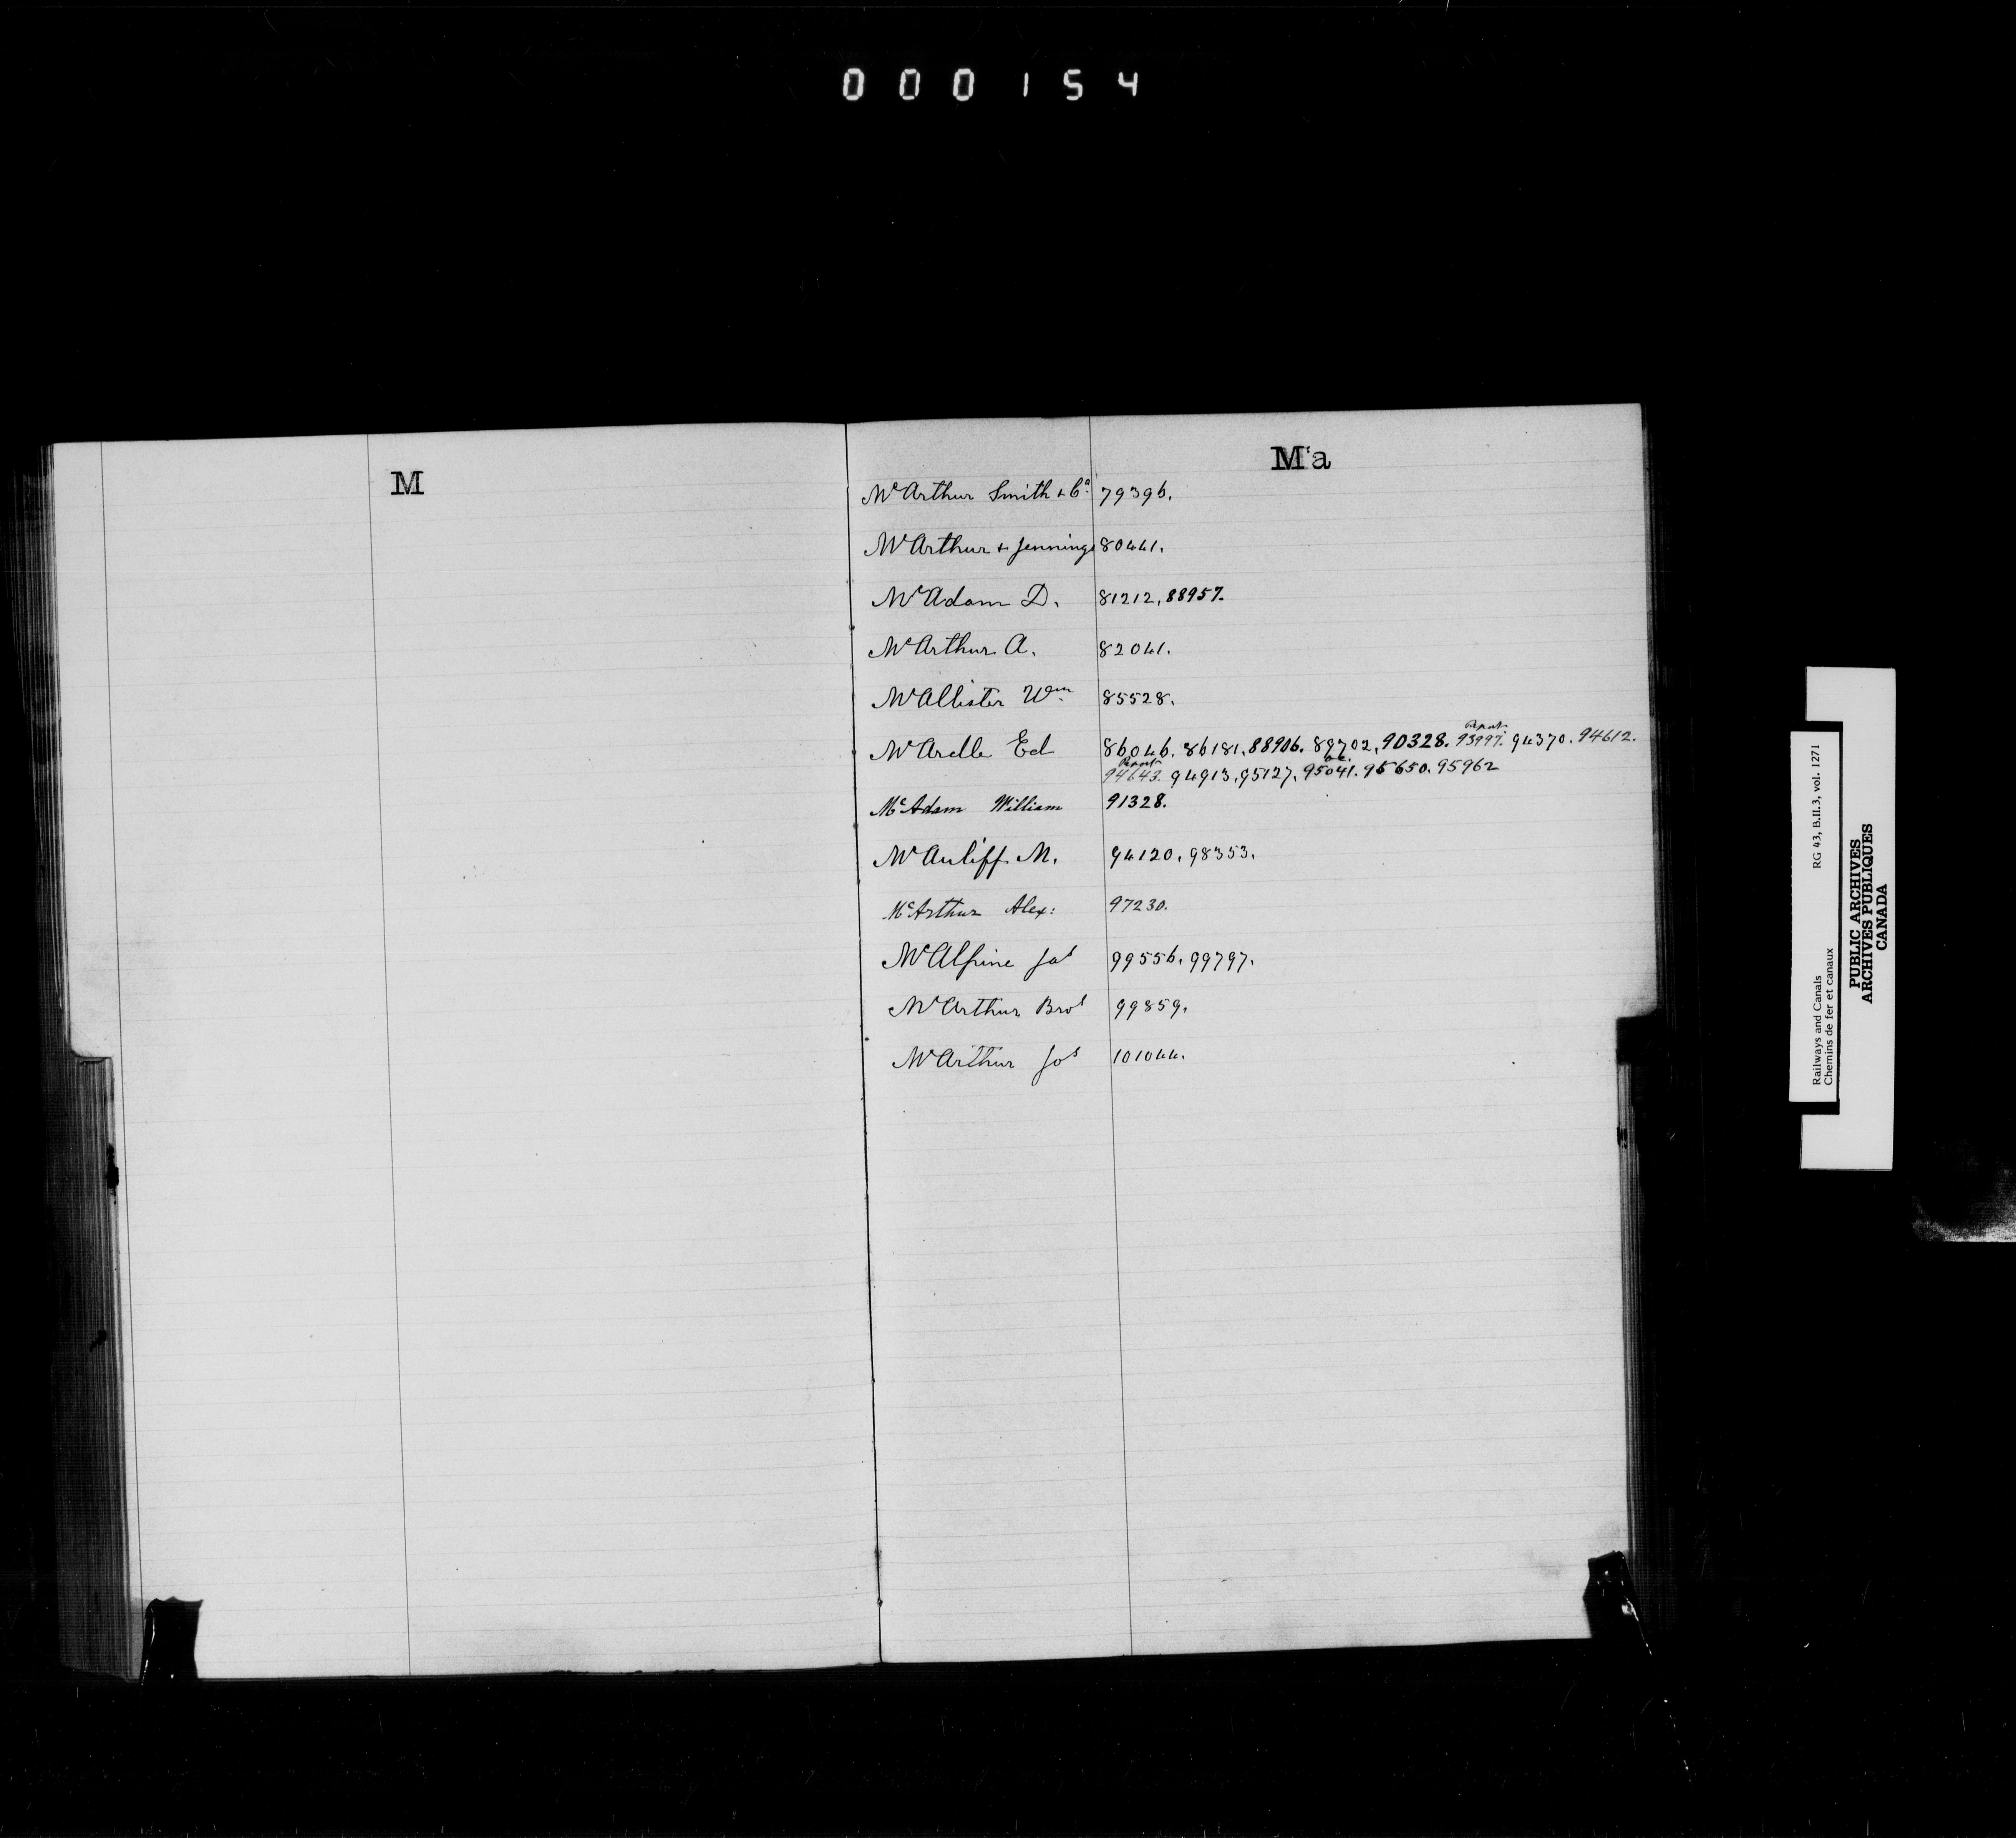 000154
M
Mca
McArthur Smith & Co. 79396.
McArthur & Jennings 80441.
McAdam D. 81212, 88957.
McArthur A. 82041.
McAllister Wm 85528.
McArdle Ed 86046. 86181. 88906. 89702, 90328. Report 93997. 94370. 94612.
Report 94643. 94913, 95127, 95041. 95650. 95962
McAdam William 91328.
McAuliff M. 94120. 98353.
McArthur Alex: 97230.
McAlpine Jas 99556. 99797.
McArthur Bros 99859.
McArthur Jos 101044.
Railways and Canals RG 43, B.II.3, vol. 1271
Chemins de fer et canaux
PUBLIC ARCHIVES
ARCHIVES PUBLIQUES
CANADA